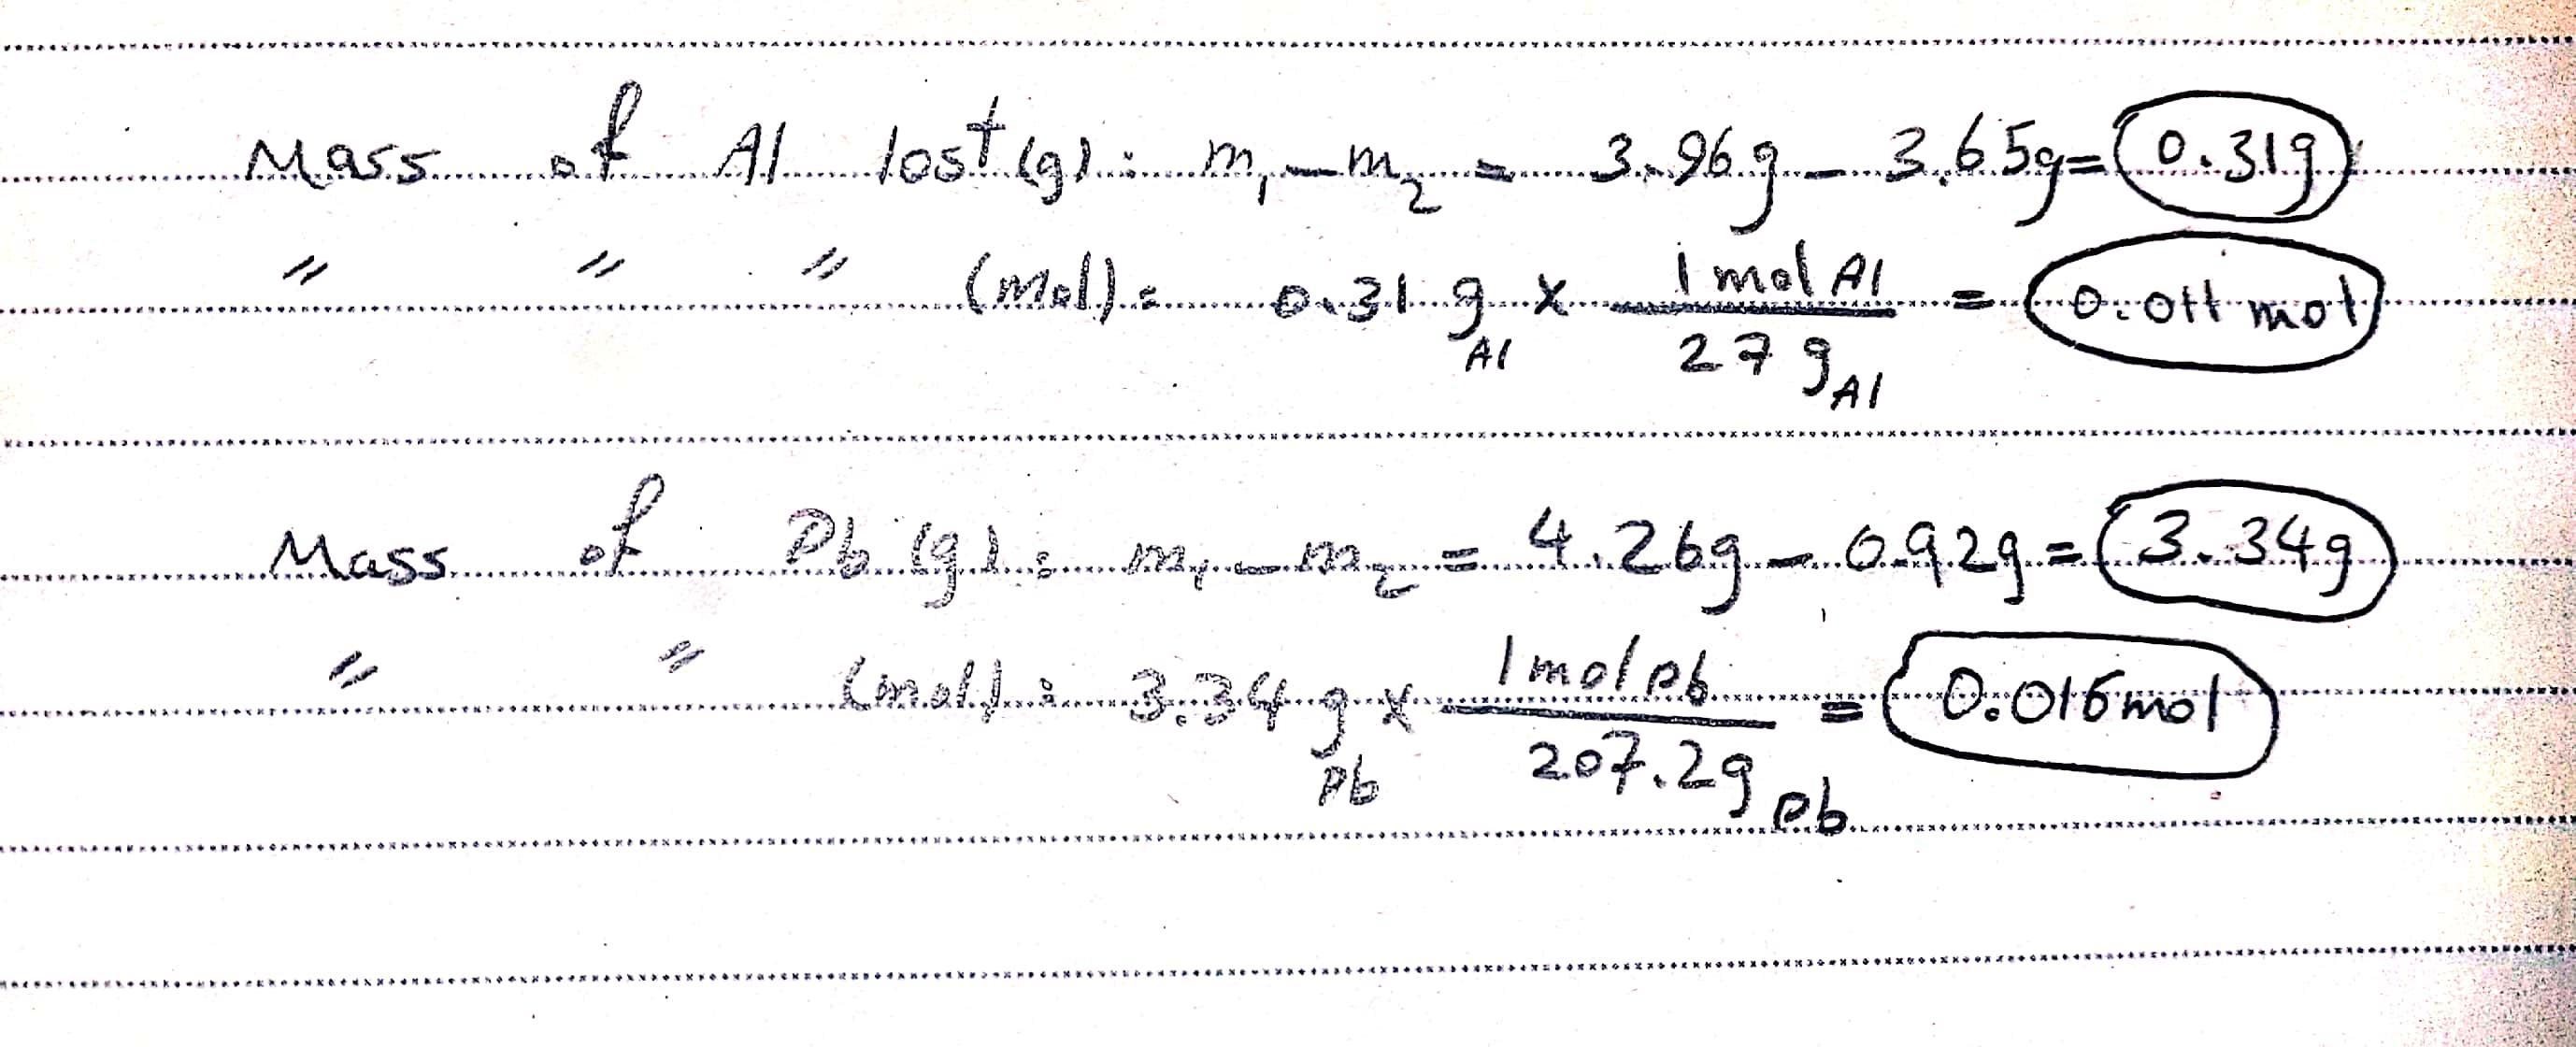 Mass of Al lost (g): m₁ - m₂ = 3.96g - 3.65g = 0.31g
〃 〃 〃 (mol): 0.31 g Al x 1 mol Al / 27 g Al = 0.011 mol
Mass of Pb (g): m₁ - m₂ = 4.26g - 0.92g = 3.34g
〃 〃 (mol): 3.34 g Pb x 1 mol Pb / 207.2g Pb = 0.016 mol